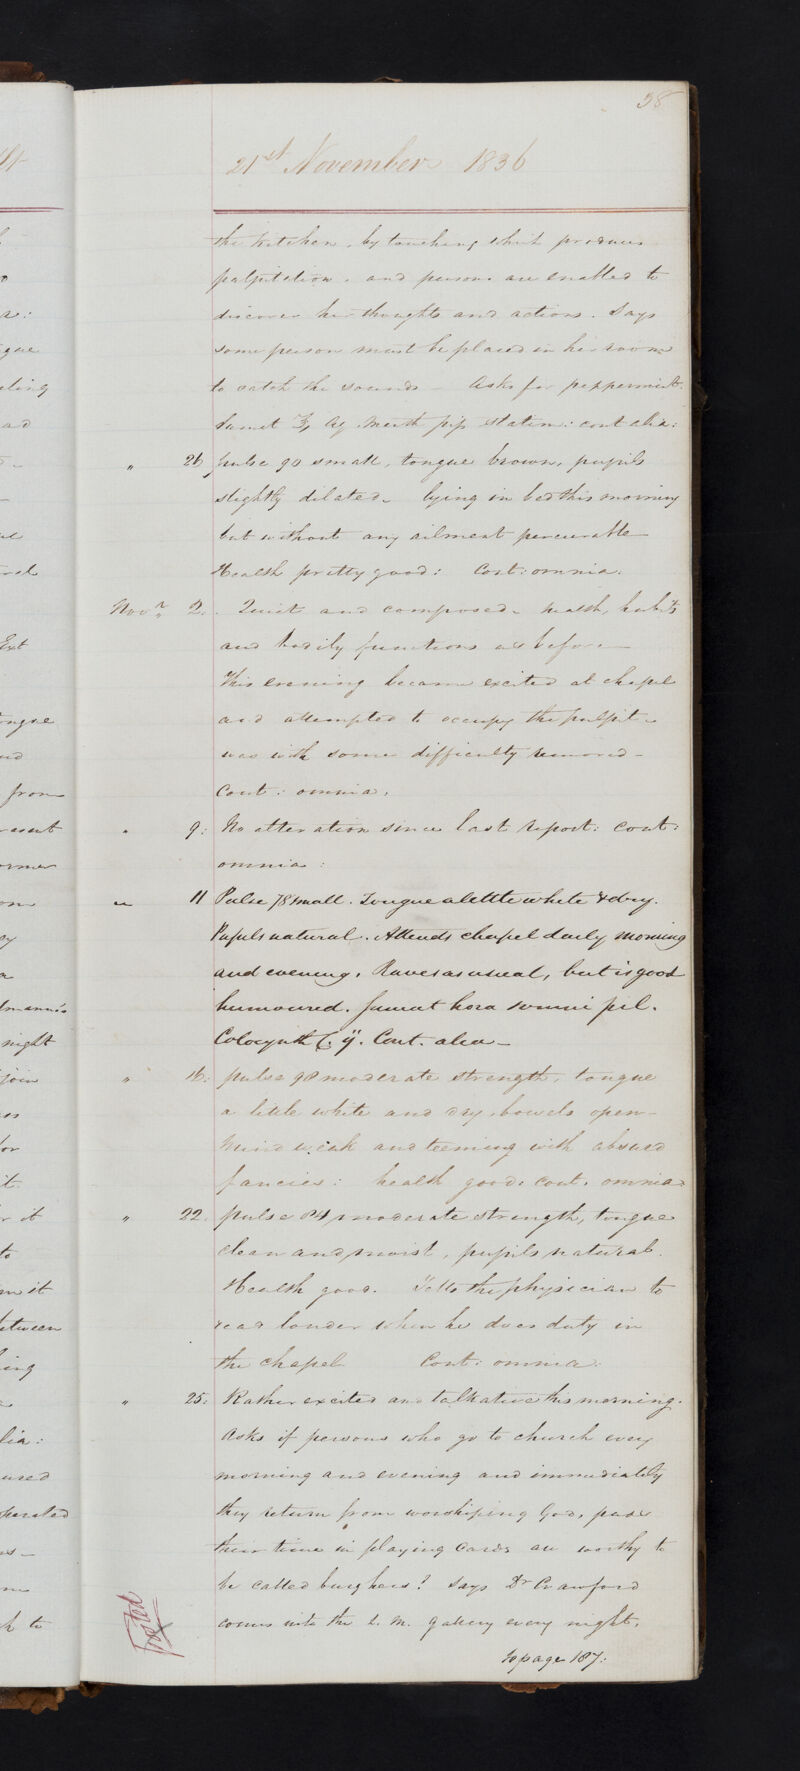 58
21st November 1836
the kitchen, by touching which produces
palpitation, and persons are enabled to
discover her thoughts and actions. Says
some person must be placed in her room
to catch the sounds — Asks for peppermint.
Sumat ℥j Aq Menth pip statim: cont alia:
" 26 pulse 90 small, tongue brown, pupils
slightly dilated — lying in bed this morning
but without any ailment perceivable
Health pretty good: Cont: omnia.
Novr 2. Quiet and composed — health, habits
and bodily functions as before —
This evening became excited at chapel
and attempted to occupy the pulpit —
was with some difficulty removed —
Cont: omnia.
" 9: No alteration since last report: cont:
omnia:
" 11 Pulse 78 small. Tongue a little white & dry.
Pupils natural. Attends chapel daily morning
and evening. Raves as usual, but is good
humoured. Sumat hora somni pil.
Colocynth C. ij. Cont. alia —
" 16: pulse 90 moderate strength, tongue
a little white and dry, bowels open —
Mind weak and teeming with absurd
fancies: health good. cont. omnia
" 22. pulse 84 moderate strength, tongue
clean and moist, pupils natural.
Health good. Tells the physician to
read louder when he does duty in
the chapel Cont: omnia:
" 25: Rather excited and talkative this morning.
Asks if persons who go to church every
morning and evening and immediately
they return from worshiping God, pass
their time in playing cards are worthy to
be called burghers? Says Dr Crawford
comes into the L. M. gallery every night.
To page 187:
Posted